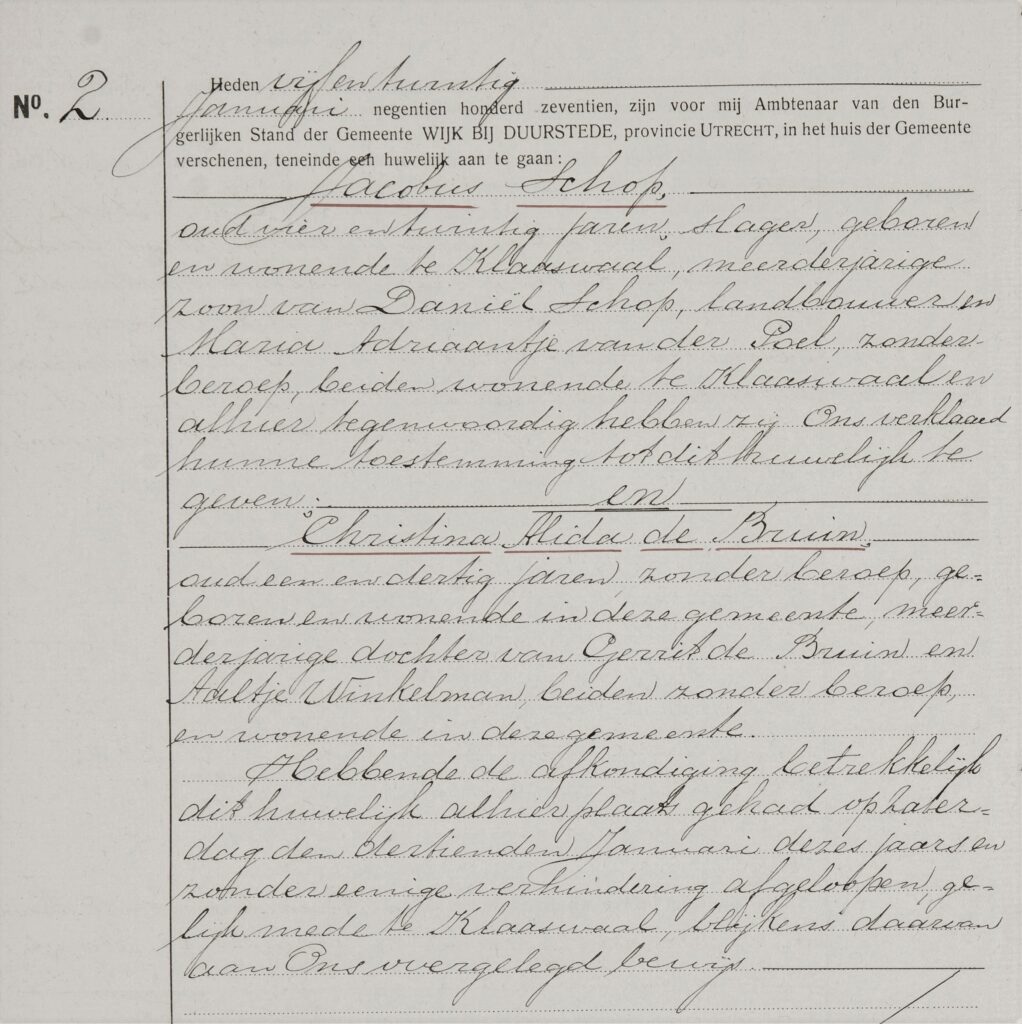 No. 2
Heden vijf en twintig
Januari negentien honderd zeventien, zijn voor mij Ambtenaar van den Bur-
gerlijken Stand der Gemeente WIJK BIJ DUURSTEDE, provincie UTRECHT, in het huis der Gemeente
verschenen, teneinde een huwelijk aan te gaan:
Jacobus Schop,
oud vier en twintig jaren, slager, geboren
en wonende te Klaaswaal, meerderjarige
zoon van Daniël Schop, landbouwer en
Maria Adriaantje van der Poel, zonder
beroep, beiden wonende te Klaaswaal en
alhier tegenwoordig hebben zij Ons verklaard
hunne toestemming tot dit huwelijk te
geven:
en
Christina Alida de Bruin,
oud een en dertig jaren, zonder beroep, ge=
boren en wonende in deze gemeente, meer=
derjarige dochter van Gerrit de Bruin en
Aaltje Winkelman, beiden zonder beroep,
en wonende in deze gemeente.
Hebbende de afkondiging betrekkelijk
dit huwelijk alhier plaats gehad op Zater=
dag den dertienden Januari dezes jaars en
zonder eenige verhindering afgeloopen, ge=
lijk mede te Klaaswaal, blijkens daarvan
aan Ons overgelegd bewijs.